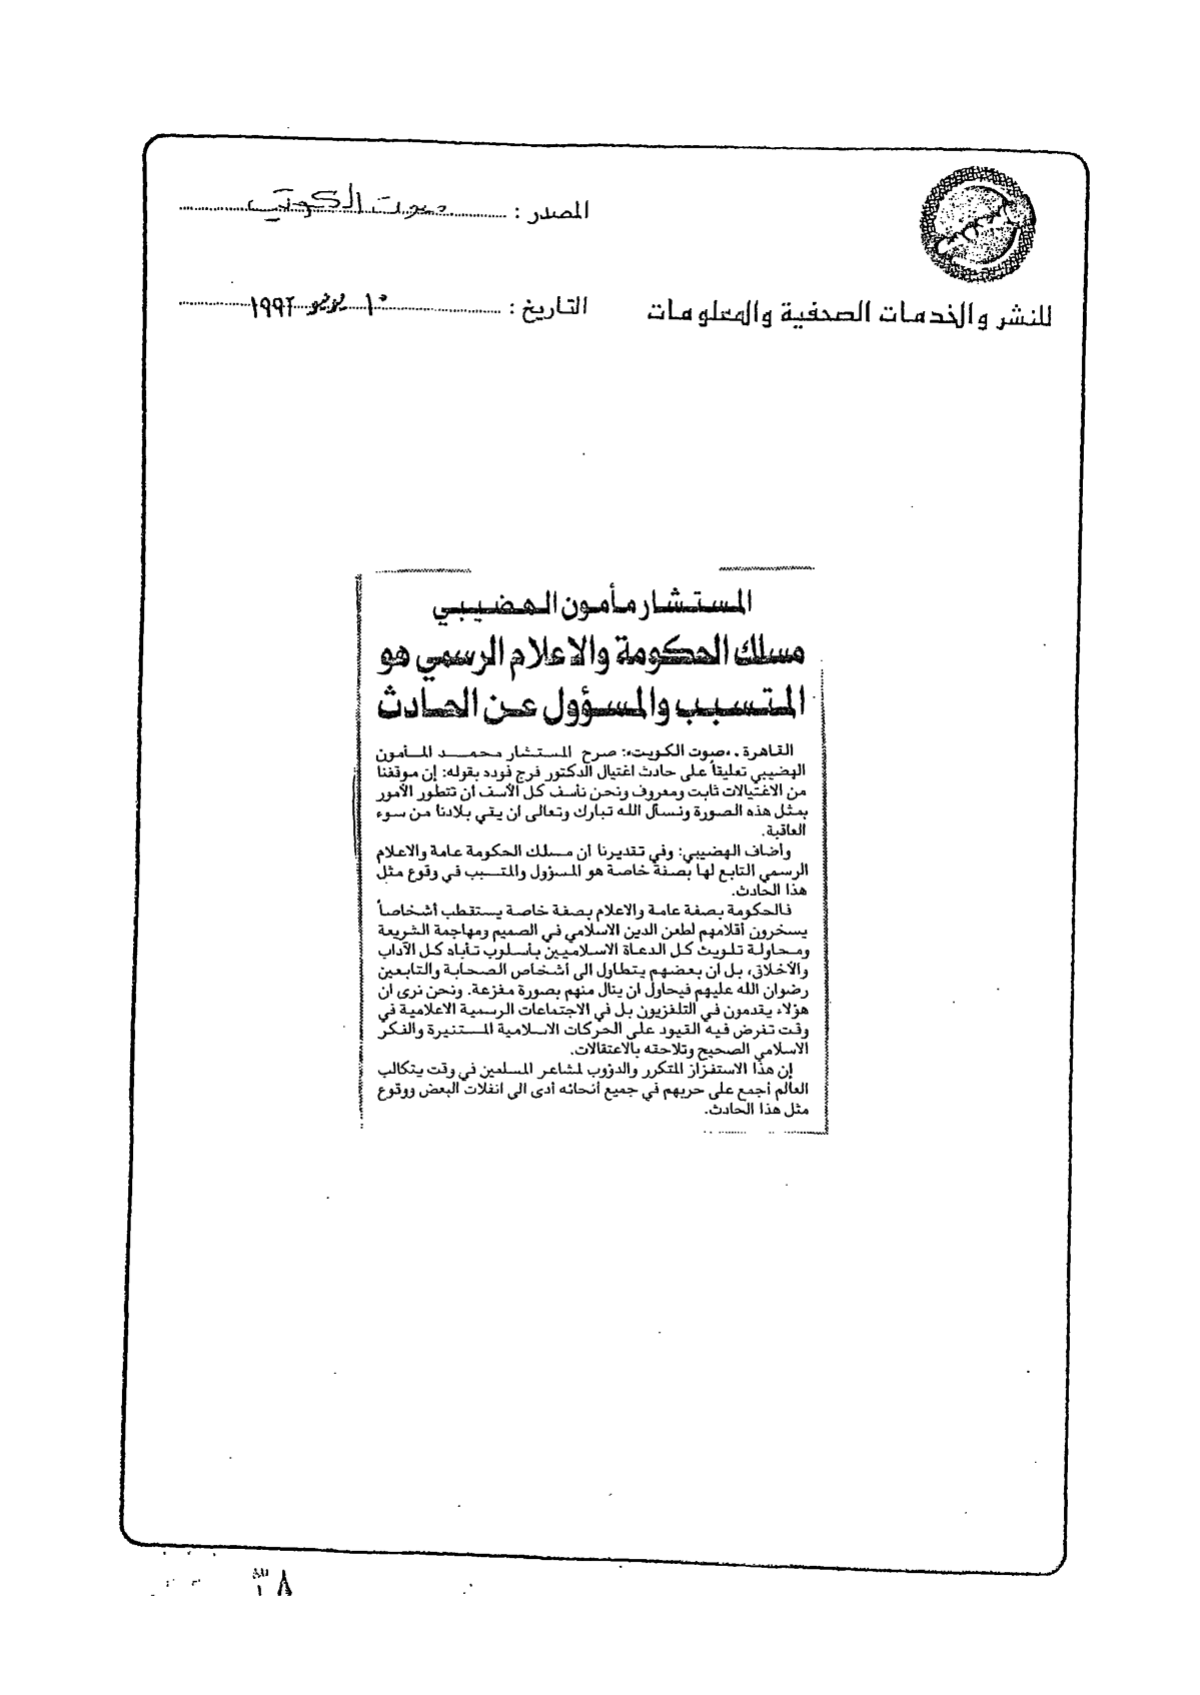 المصدر : صوت الكويت
للنشر والخدمات الصحفية والمعلومات
التاريخ : ١٠ يونيو ١٩٩٢
المستشار مأمون الهضيبي
مسلك الحكومة والاعلام الرسمي هو
المتسبب والمسؤول عن الحادث
القاهرة ـ «صوت الكويت»: صرح المستشار محمد المأمون
الهضيبي تعليقاً على حادث اغتيال الدكتور فرج فوده بقوله: إن موقفنا
من الاغتيالات ثابت ومعروف ونحن نأسف كل الأسف أن تتطور الأمور
بمثل هذه الصورة ونسأل الله تبارك وتعالى ان يقي بلادنا من سوء
العاقبة.
وأضاف الهضيبي: وفي تقديرنا ان مسلك الحكومة عامة والاعلام
الرسمي التابع لها بصفة خاصة هو المسؤول والمتسبب في وقوع مثل
هذا الحادث.
فالحكومة بصفة عامة والاعلام بصفة خاصة يستقطب أشخاصاً
يسخرون أقلامهم لطعن الدين الاسلامي في الصميم ومهاجمة الشريعة
ومحاولة تلويث كل الدعاة الاسلاميين بأسلوب تأباه كل الآداب
والأخلاق، بل ان بعضهم يتطاول الى أشخاص الصحابة والتابعين
رضوان الله عليهم فيحاول ان ينال منهم بصورة مفزعة. ونحن نرى ان
هؤلاء يقدمون في التلفزيون بل في الاجتماعات الرسمية الاعلامية في
وقت تفرض فيه القيود على الحركات الاسلامية المستنيرة والفكر
الاسلامي الصحيح وتلاحقه بالاعتقالات.
إن هذا الاستفزاز المتكرر والدؤوب لمشاعر المسلمين في وقت يتكالب
العالم أجمع على حربهم في جميع أنحائه أدى الى انفلات البعض ووقوع
مثل هذا الحادث.